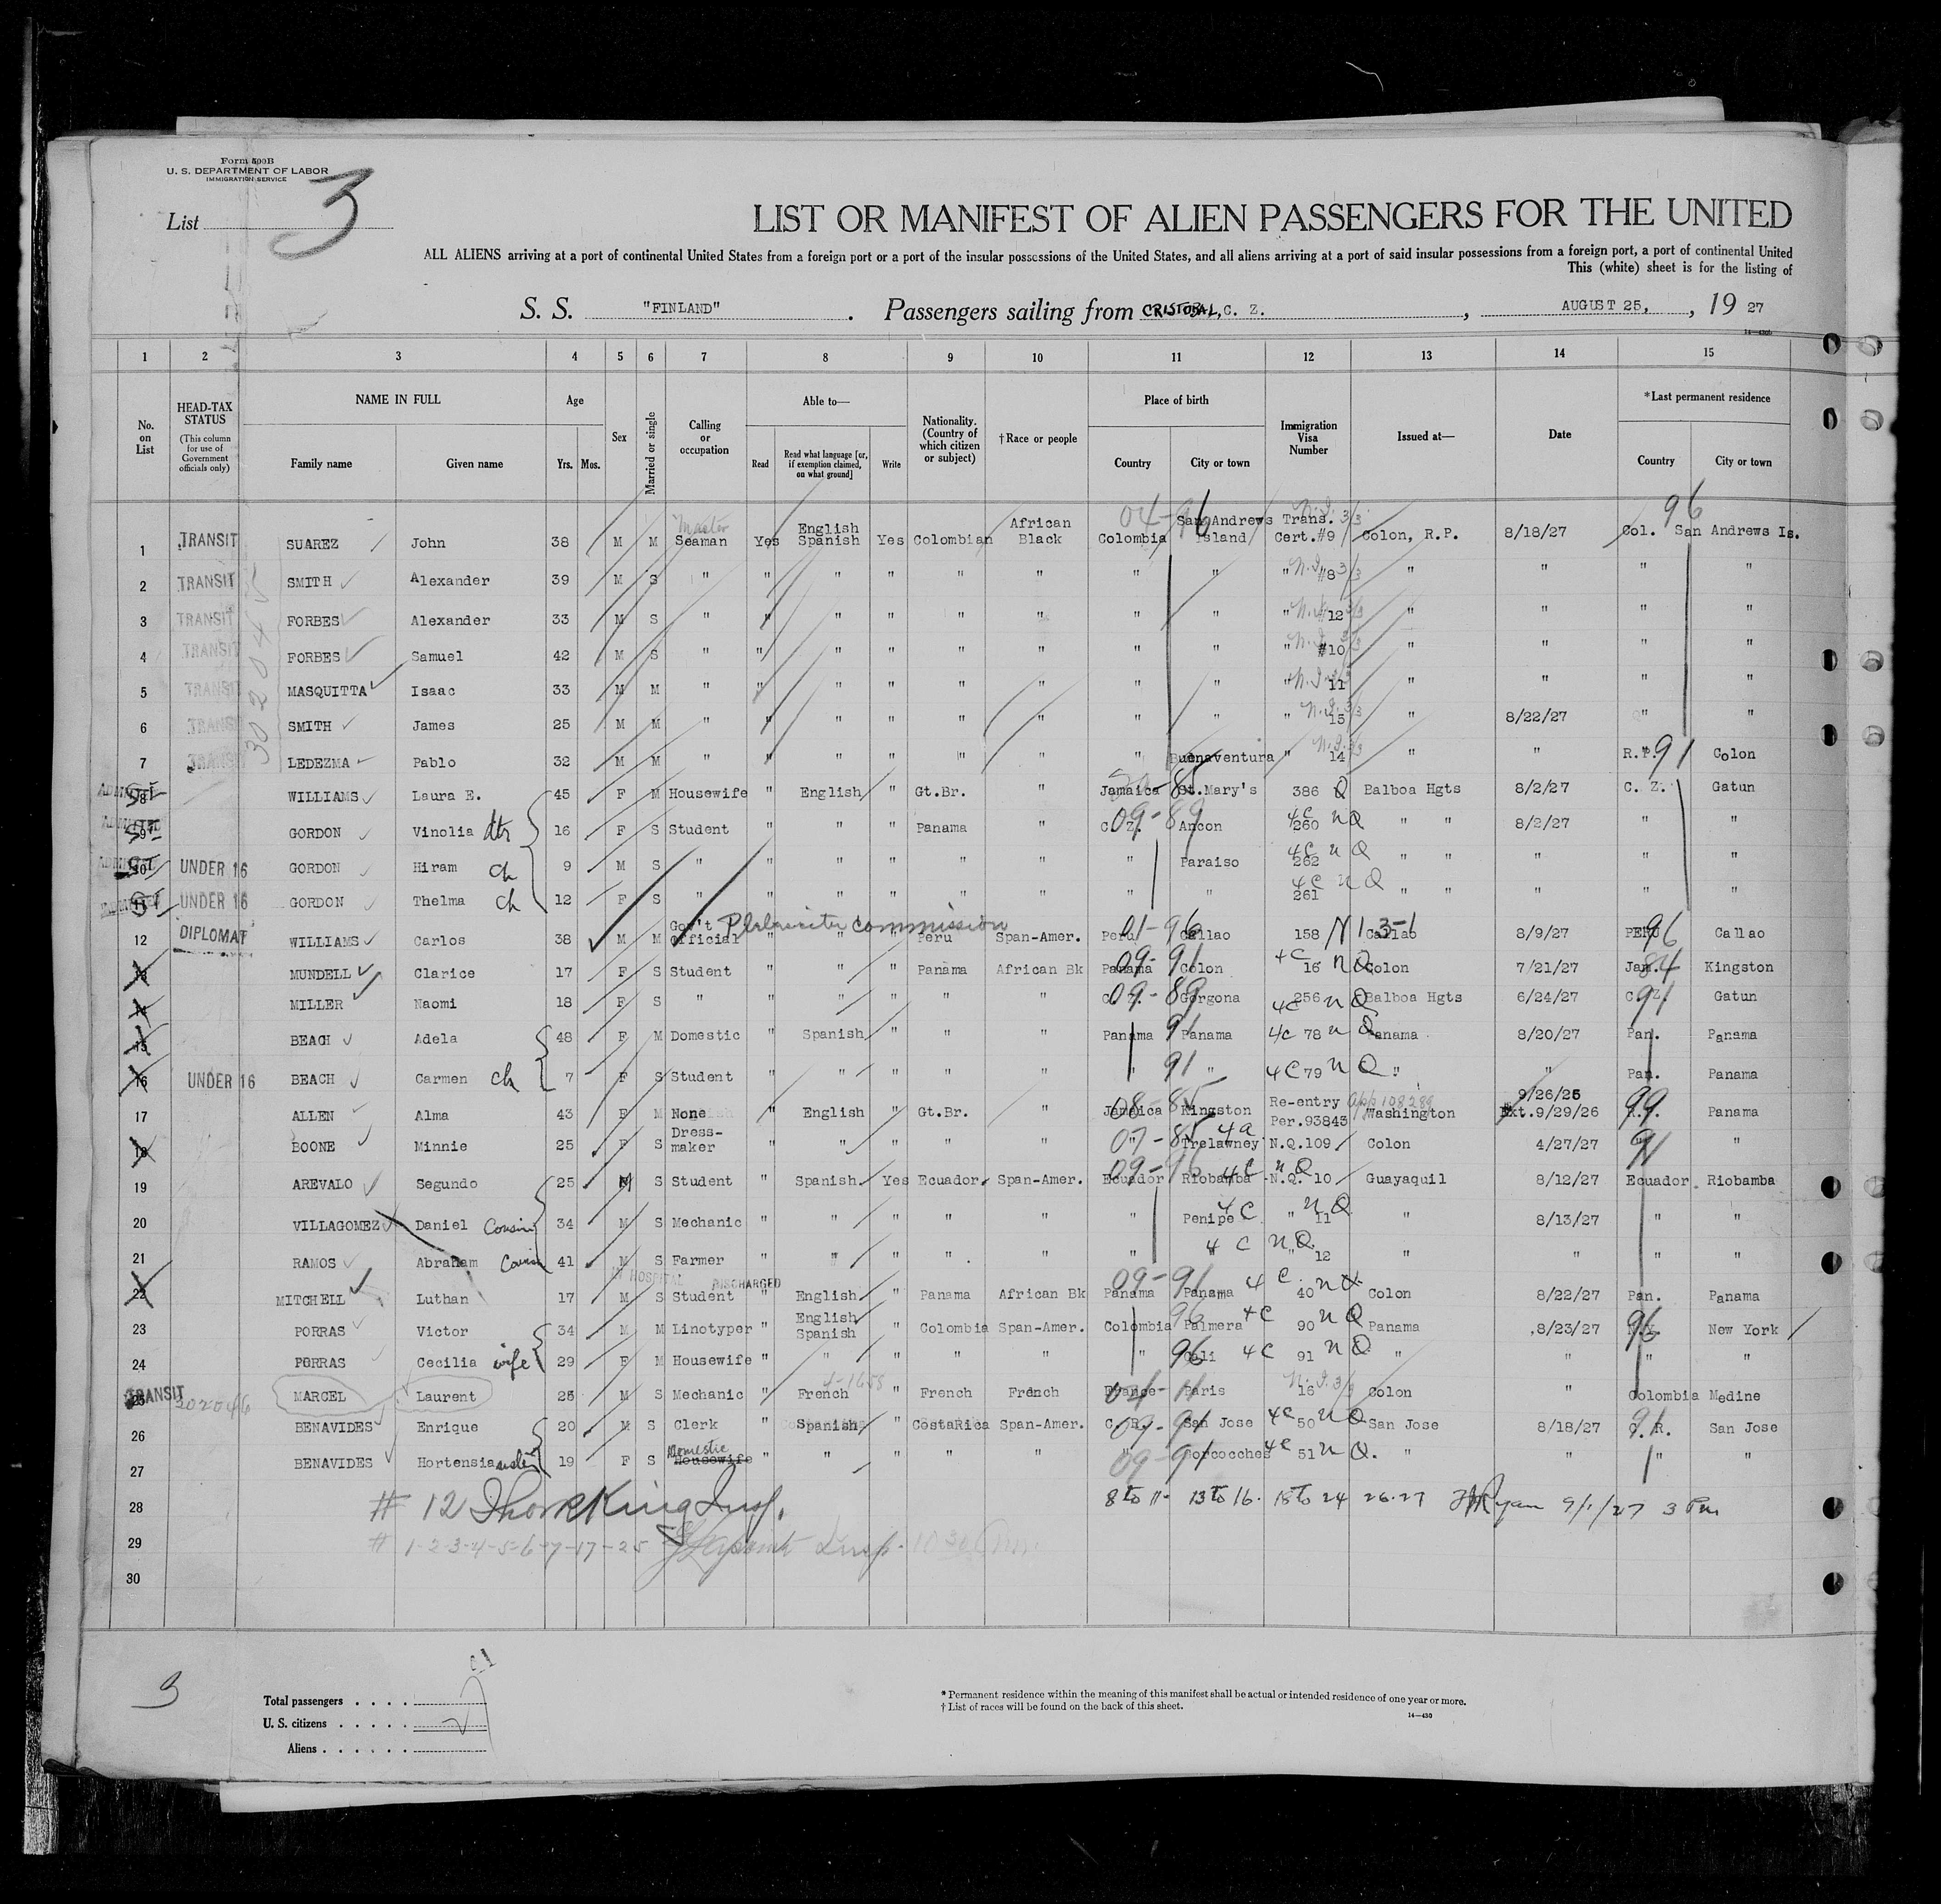 Form 500B
U. S. DEPARTMENT OF LABOR
IMMIGRATION SERVICE
List 3
LIST OR MANIFEST OF ALIEN PASSENGERS FOR THE UNITED
ALL ALIENS arriving at a port of continental United States from a foreign port or a port of the insular possessions of the United States, and all aliens arriving at a port of said insular possessions from a foreign port, a port of continental United
This (white) sheet is for the listing of
S. S. "FINLAND" . Passengers sailing from CRISTOBAL, C. Z. , AUGUST 25, , 19 27
14—430b
1 2 3 4 5 6 7 8 9 10 11 12 13 14 15
No. on List HEAD-TAX STATUS (This column for use of Government officials only) NAME IN FULL Family name Given name Age Yrs. Mos. Sex Married or single Calling or occupation Able to— Read Read what language [or, if exemption claimed, on what ground] Write Nationality. (Country of which citizen or subject) †Race or people Place of birth Country City or town Immigration Visa Number Issued at— Date *Last permanent residence Country City or town
04-96 N.I. 3/3 96
1 TRANSIT SUAREZ John 38 M M Master Seaman Yes English Spanish Yes Colombian African Black Colombia San Andrews Island Trans. Cert.#9 Colon, R.P. 8/18/27 Col. San Andrews Is.
2 TRANSIT SMITH Alexander 39 M S " " " " " " " " " N.I. #8 3/3 " " " "
3 TRANSIT FORBES Alexander 33 M S " " " " " " " " " #12 " " " "
4 TRANSIT FORBES Samuel 42 M S " " " " " " " " " N.I. #10 3/3 " " " "
5 TRANSIT MASQUITTA Isaac 33 M M " " " " " " " " " 11 " " " "
6 TRANSIT SMITH James 25 M M " " " " " " " " " N.I. 3/3 15 " 8/22/27 " "
7 TRANSIT LEDEZMA Pablo 32 M M " " " " " " " Buenaventura " N.I. 3/3 14 " " R.P. 91 Colon
302045
8 ADMITTED SI WILLIAMS Laura E. 45 F M Housewife " English " Gt.Br. " Jamaica St.Mary's 386 Q Balboa Hgts 8/2/27 C. Z. Gatun
9 ADMITTED SI GORDON Vinolia dtr 16 F S Student " " " Panama " C. Z. 09-89 Ancon 4C 260 NQ " " 8/2/27 " "
10 ADMITTED SI UNDER 16 GORDON Hiram ch 9 M S " " " " " " " Paraiso 4C 262 NQ " " " " "
11 SI UNDER 16 GORDON Thelma ch 12 F S " " " " " " " " 4C 261 NQ " " " " "
12 DIPLOMAT WILLIAMS Carlos 38 M M Gov't Official Plebiscite Commission " " " Peru Span-Amer. Peru 01-96 Callao 158 N 13-1 Callao 8/9/27 PERU 96 Callao
13 MUNDELL Clarice 17 F S Student " " " Panama African Bk Panama 09-91 Colon 4C 16 NQ Colon 7/21/27 Jam. 84 Kingston
14 MILLER Naomi 18 F S " " " " " " C. Z. 09-89 Gorgona 4C 256 NQ Balboa Hgts 6/24/27 C. Z. 91 Gatun
15 BEACH Adela 48 F M Domestic " Spanish " " " Panama 91 Panama 4C 78 NQ Panama 8/20/27 Pan. Panama
16 UNDER 16 BEACH Carmen ch 7 F S Student " " " " " " 91 " 4C 79 NQ " " Pan. Panama
17 ALLEN Alma 43 F M None " English " Gt.Br. " Jamaica 08-85 Kingston Re-entry Per.93843 App 108289 Washington 9/26/25 Ext.9/29/26 99 Panama
18 BOONE Minnie 25 F S Dress-maker " " " " " " 07-85 Trelawney 4a N.Q.109 Colon 4/27/27 91 "
19 AREVALO Segundo 25 M S Student " Spanish Yes Ecuador Span-Amer. Ecuador 09-96 Riobamba 4C NQ N.Q. 10 Guayaquil 8/12/27 Ecuador Riobamba
20 VILLAGOMEZ Daniel Cousin 34 M S Mechanic " " " " " " Penipe 4C " 11 NQ " 8/13/27 " "
21 RAMOS Abraham Cousin 41 M S Farmer " " " " " " " 4C NQ " 12 " " " "
IN HOSPITAL DISCHARGED
22 MITCHELL Luthan 17 M S Student " English " Panama African Bk Panama 09-91 Panama 4C 40 Colon 8/22/27 Pan. Panama
23 PORRAS Victor 34 M M Linotyper " English Spanish " Colombia Span-Amer. Colombia 96 Palmera 4C 90 NQ Panama 8/23/27 N.Y. New York
24 PORRAS Cecilia wife 29 F M Housewife " " " " " " 96 Cali 4C 91 NQ " " " "
25 TRANSIT 302046 MARCEL Laurent 25 M S Mechanic " French " French French France Paris N.I. 3/3 16 Colon " Colombia Medine
26 BENAVIDES Enrique 20 M S Clerk " Spanish " CostaRica Span-Amer. C. R. 09-91 San Jose 4C 50 NQ San Jose 8/18/27 C. R. 91 San Jose
27 BENAVIDES Hortensia sister 19 F S Domestic Housewife " " " " " " 09-91 4C 51 NQ. " " " "
28 # 12 Insp. 8 to 11 - 13 to 16. 18 to 24 26.27 Ryan 9/1/27 3 Pm
29 # 1-2-3-4-5-6-7-17-25 Insp.
30
3
Total passengers . . . .
U. S. citizens . . . . .
Aliens . . . . . .
* Permanent residence within the meaning of this manifest shall be actual or intended residence of one year or more.
† List of races will be found on the back of this sheet.
14—430